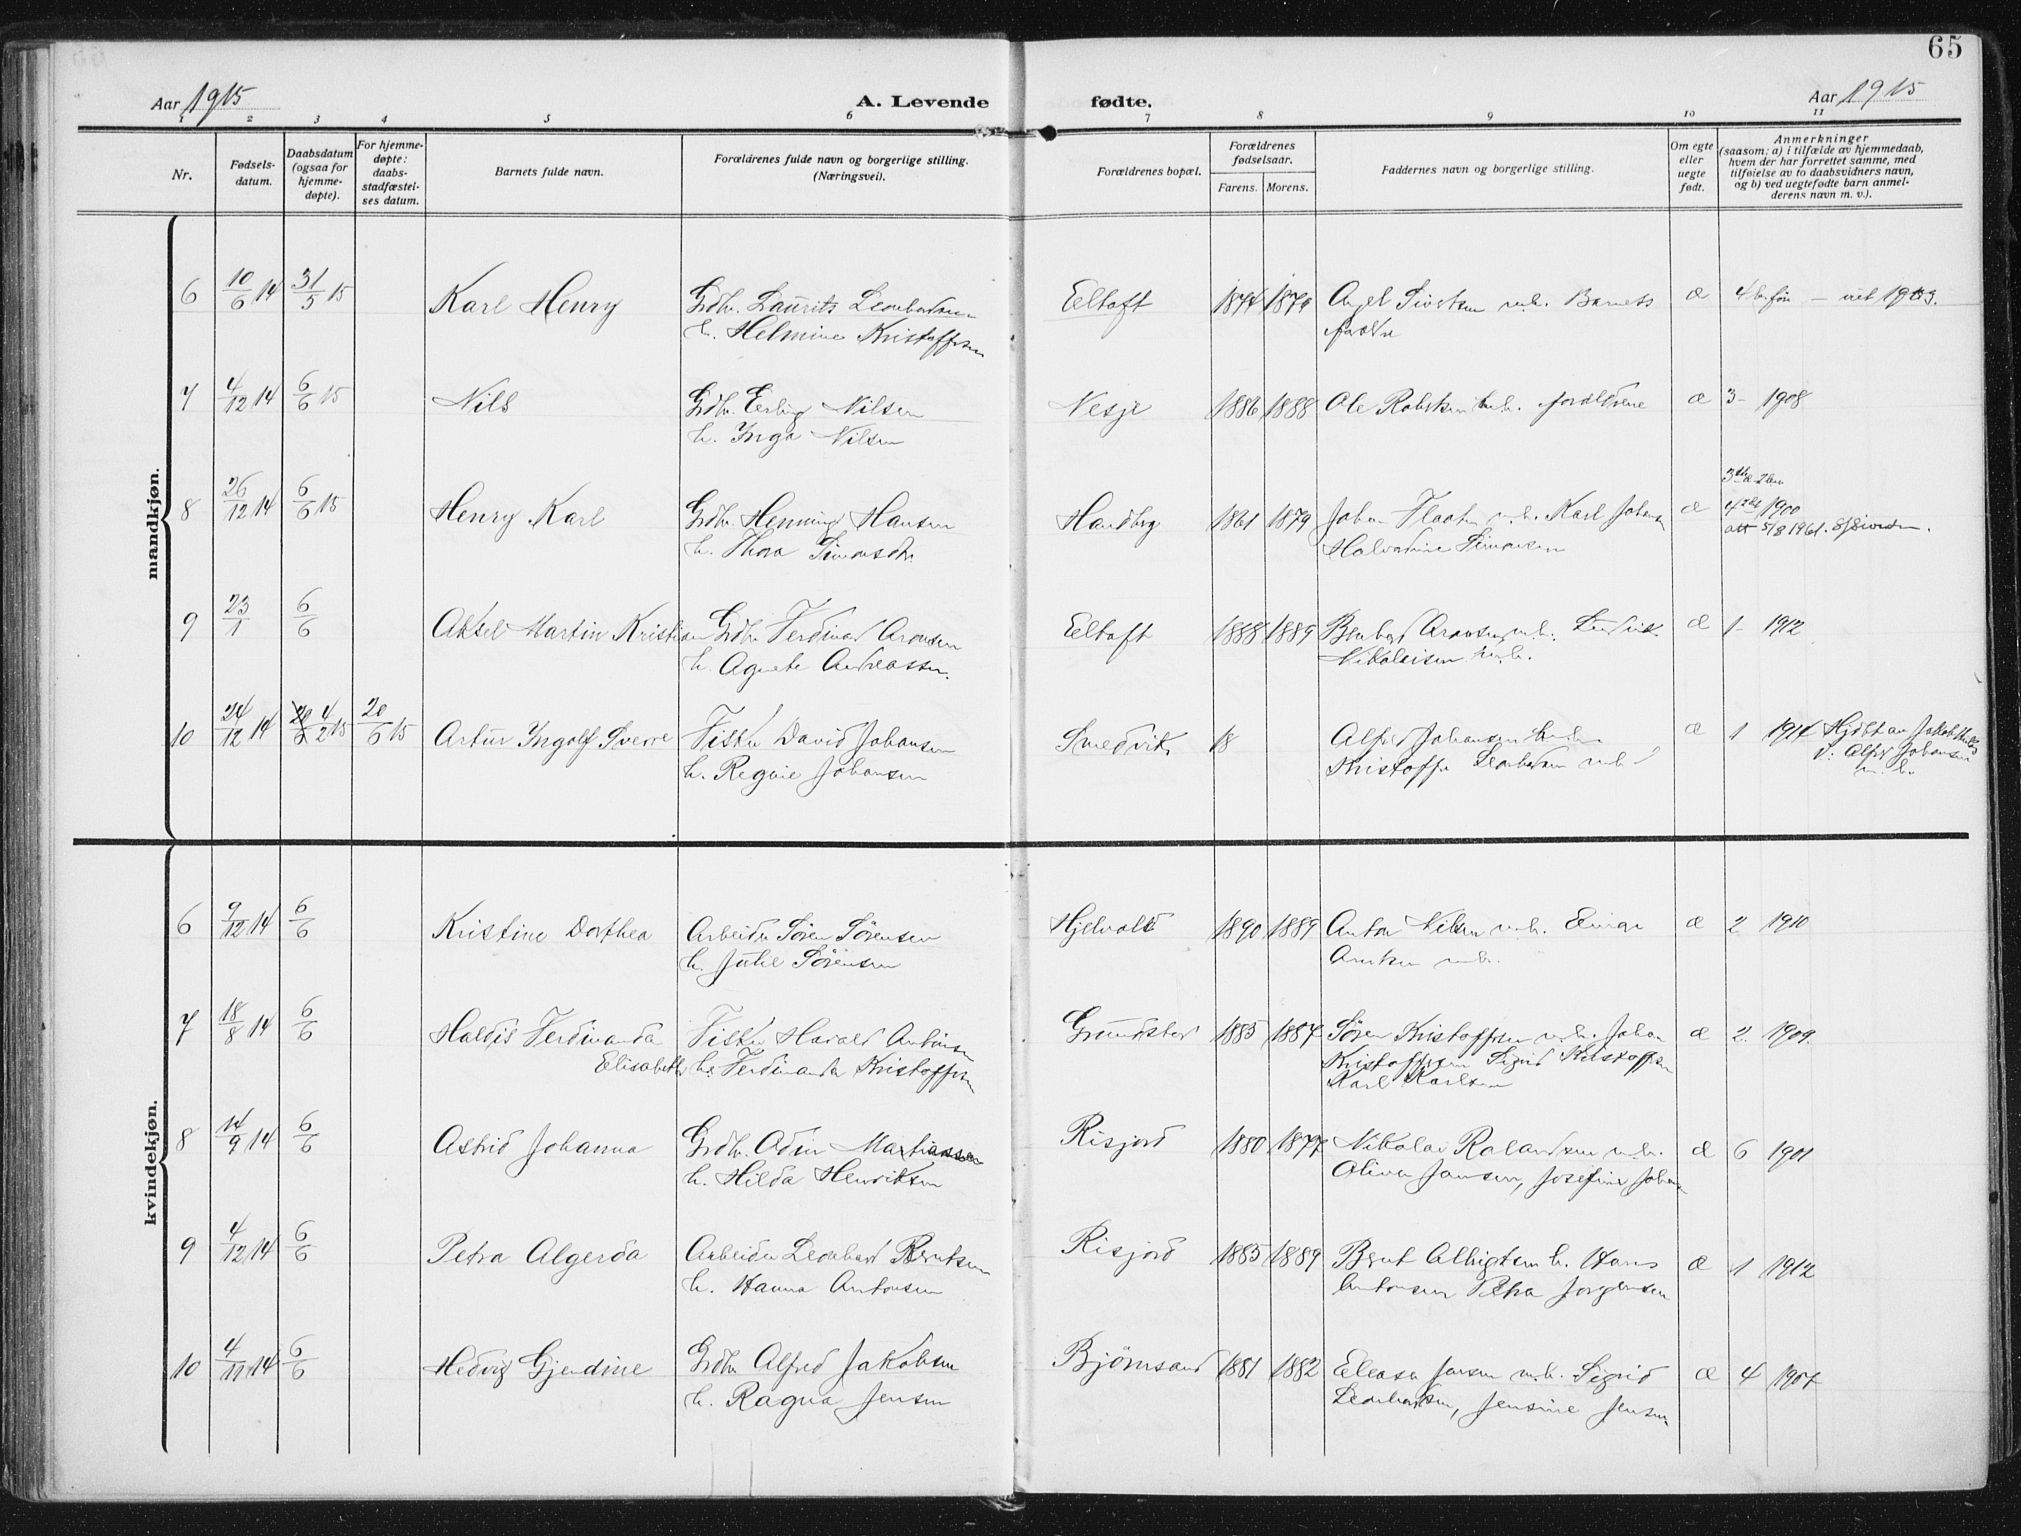 65
Aar 1915
A. Levende
fødte.
Aar 1915
1 2 3 4 5 6 7 8 9 10 11
Nr.
Fødsels-
datum.
Daabsdatum
(ogsaa for
hjemme-
døpte).
For hjemme-
døpte:
daabs-
stadfæstel-
ses datum.
Barnets fulde navn.
Forældrenes fulde navn og borgerlige stilling.
(Næringsvei).
Forældrenes bopæl.
Forældrenes
fødselsaar.
Farens. Morens.
Faddernes navn og borgerlige stilling.
Om egte
eller
uegte
født.
Anmerkninger
(saasom: a) i tilfælde av hjemmedaab,
hvem der har forrettet samme, med
tilføielse av to daabsvidners navn,
og b) ved uegtefødte barn anmel-
derens navn m. v.).
mandkjøn.
6 10/6 14 31/5 15 Karl Henry Grdbr. Laurits Leonhardsen Eltoft 1874 1879 m.h. Barnets æ
h. Helmine Kristoffersen
7 4/12 14 6/6 15 Nils Grdbr. Erling Nilsen Nesje 1886 1888 Ole m.h. forældrene æ 3- 1908
h. Inga Nilsen
8 26/12 14 6/6 15 Henry Karl Grdbr. Henning Hansen Handberg 1861 1879 Johan Flaaten m.h. Karl Johansen æ 1900
h. Thora Simonsdtr. Halvardine Simonsen 5/8 1961.
9 23/1 6/6 Aksel Martin Kristian Grdbr Ferdinand Aronsen Eltoft 1888 1889 Bernhard Aronsen m.h. Ludvik æ 1- 1912
h. Agnete Andreassen. Nikolaisen m.h.
10 24/12 14 4/2 15 20/6 15 Artur Ingolf Sverre Fisker David Johansen Smedvik 18 Alfred Johansen æ 1 1914 Hjdbt av
h. Regine Johansen Kristoffer Leonhardsen m.h. Alfred Johansen
m.h.
kvindekjøn.
6 9/12 14 6/6 Kristine Dorthea Arbeider Søren Sørensen Hjelvold 1890 1889 Anton Nilsen m.h. æ 2 1910
h. Julie Sørensen m.h.
7 18/8 14 6/6 Haldis Ferdinanda Fisker Harald Antonsen Grundstad 1885 1887 Søren Kristoffersen m.h. Johan æ 2. 1909.
Elisabeth h. Ferdinanda Kristoffersen Kristoffersen Sigrid Kristoffersen
Karl Karlsen
8 14/9 14 6/6 Astrid Johanna Grdbr. Odin Martinassen Risjord 1880 1877 Nikolai Rolandsen m.h. æ 6 1901
h. Hilda Henriksen Oliver Jansen, Josefine Johansen
9 4/12 14 6/6 Petra Algerda Arbeider Leonhard Berntsen Risjord 1885 1889 Bernt Albrigtsen h. Hans æ 1 1912
h. Hanna Antonsen Antonsen Petra Jørgensen
10 4/11 14 6/6 Hedvig Gjendine Grdbr Alfred Jakobsen Bjørnsand 1881 1882 Eleasa Jensen m.h. Sigrid æ 4 1907
h. Ragna Jensen Leonhardsen, Jensine Jensen